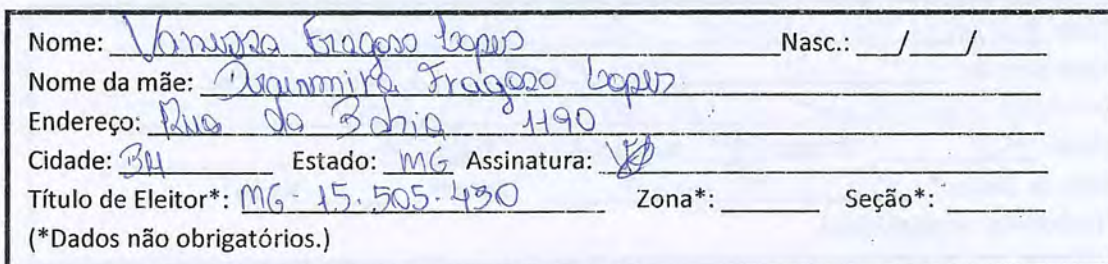 Nome: Vanessa Fragoso Lopes Nasc.: / /
Nome da mãe: Fragoso Lopes
Endereço: Rua da Bahia 1190
Cidade: BH Estado: MG Assinatura:
Título de Eleitor*: MG- 15.505.430 Zona*: Seção*:
(*Dados não obrigatórios.)